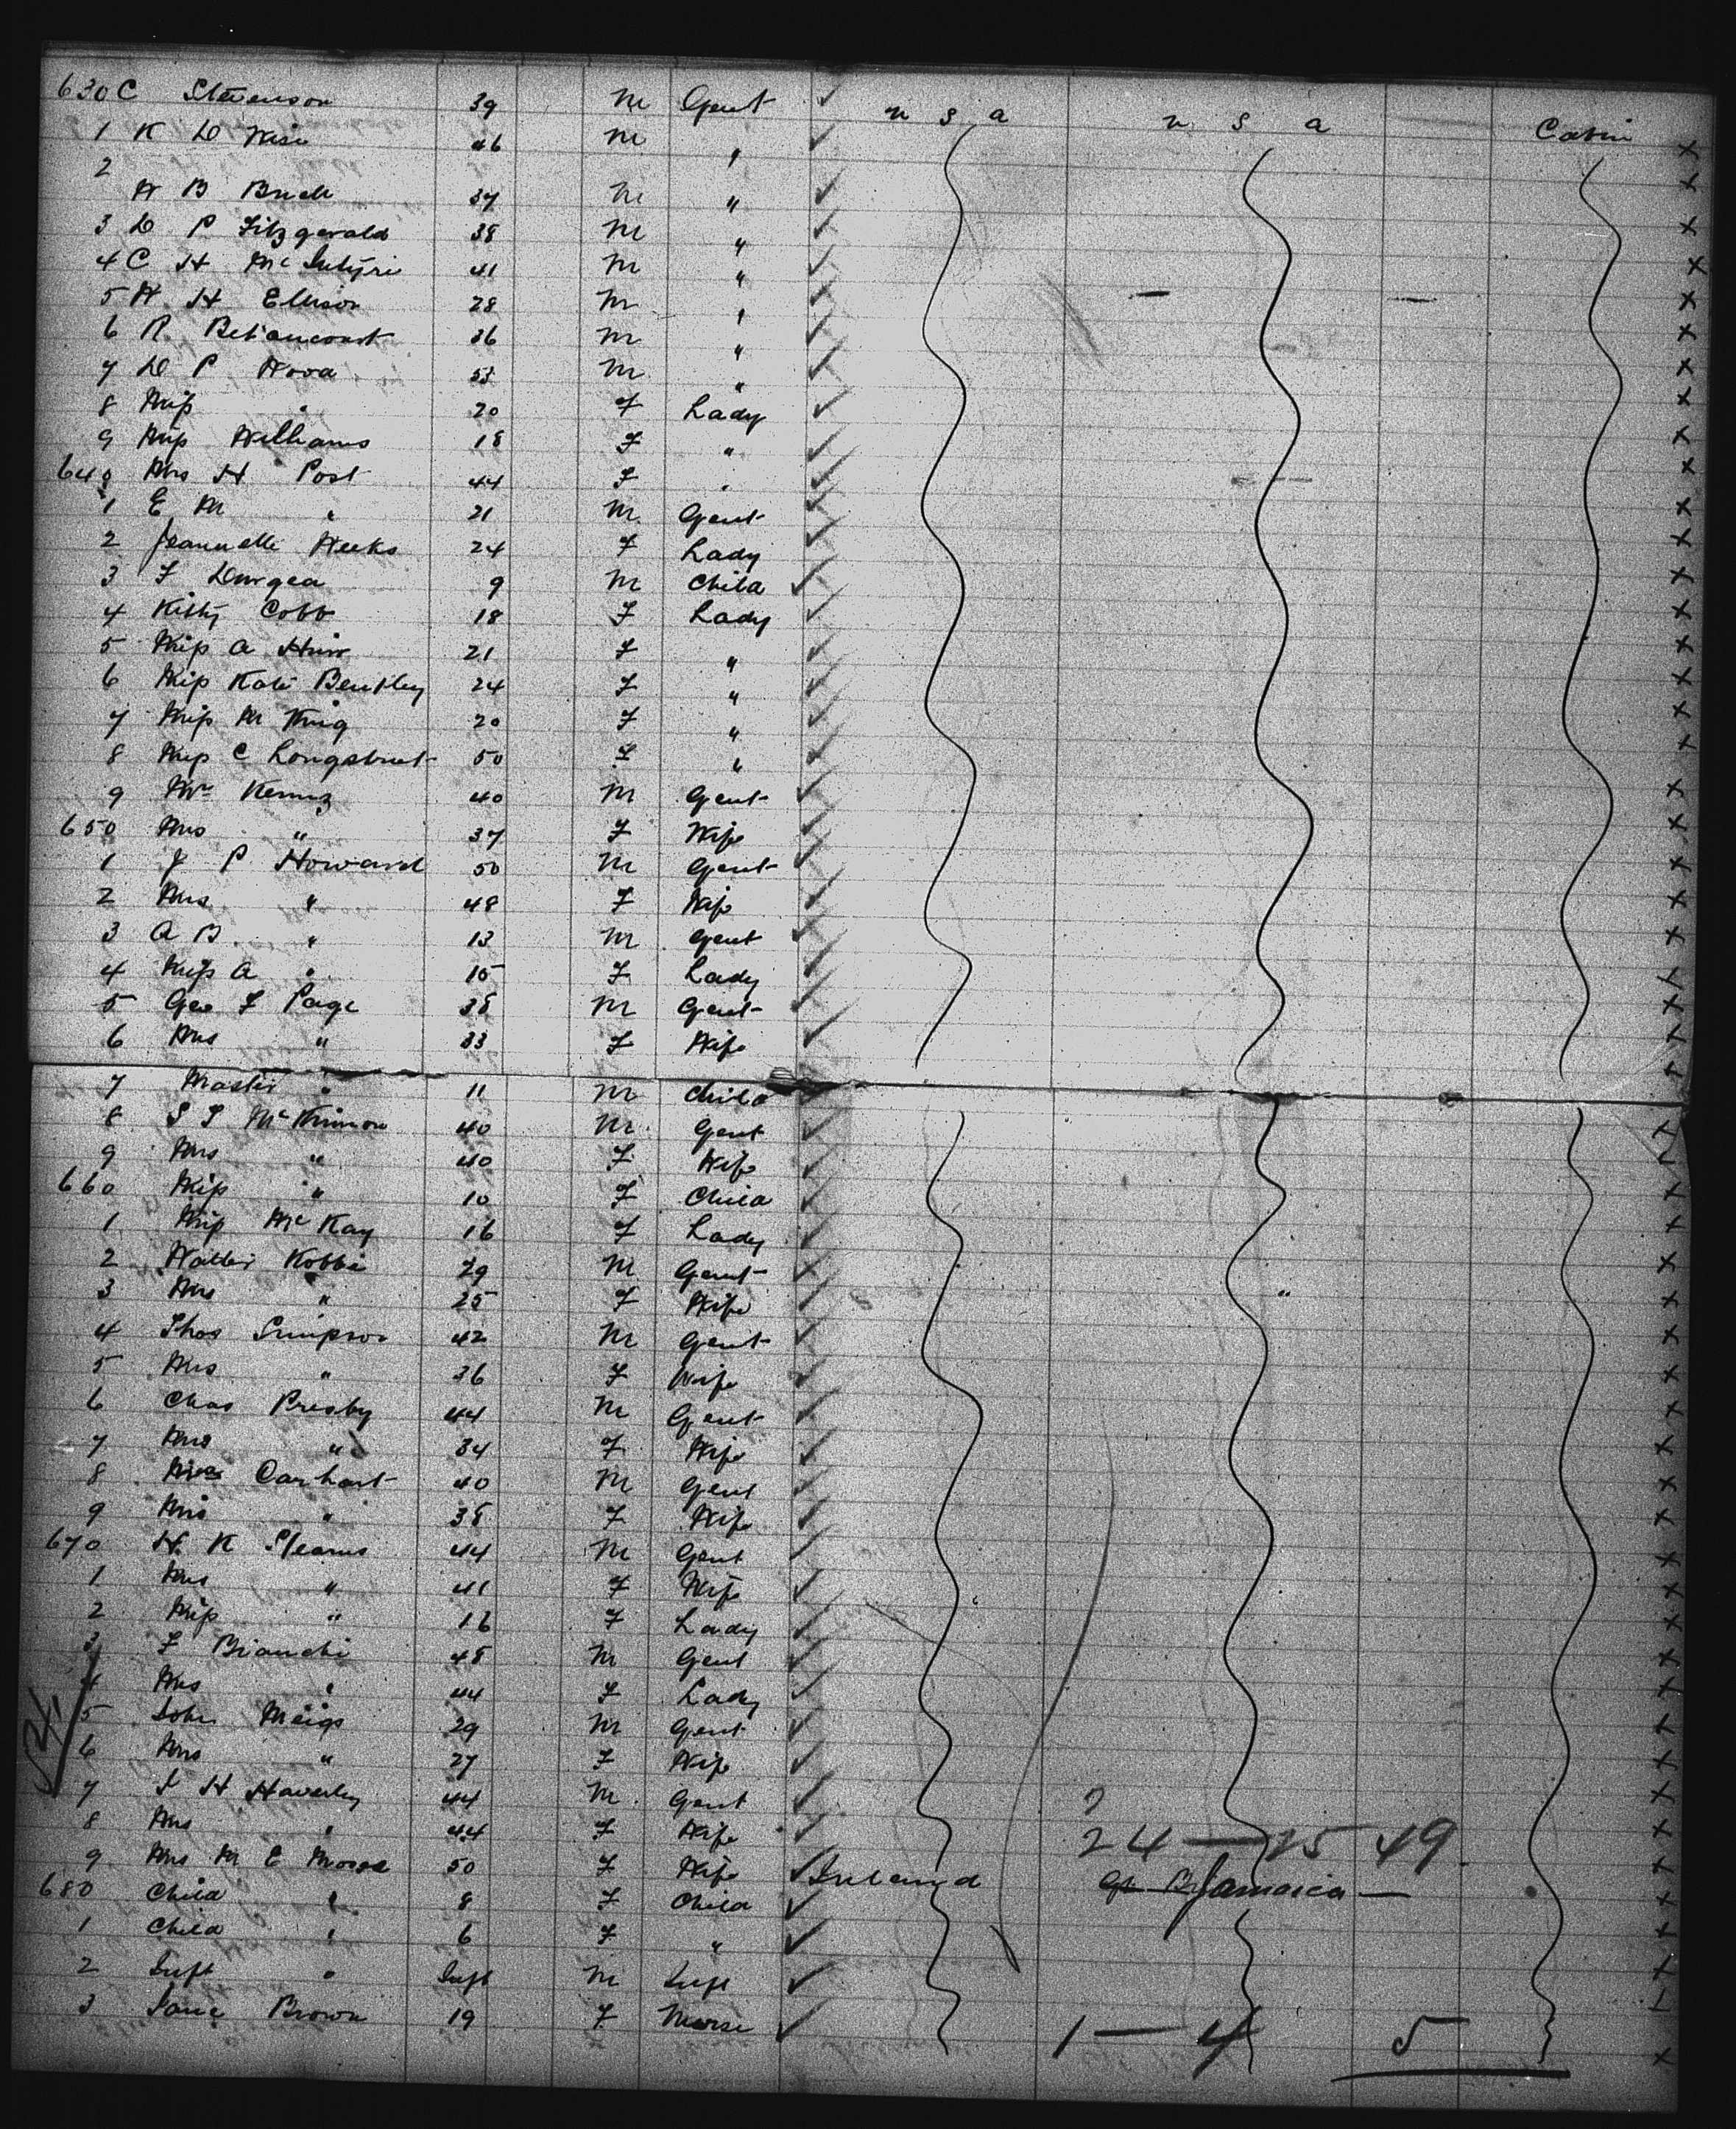 630 C Stevenson 39 M Gent U S A U S A Cabin
1 K D Wise 46 M "
2
W B Buell 37 M "
3 D P Fitzgerald 38 M "
4 C H McIntyre 41 M "
5 W H Ellison 28 M "
6 R Betancourt 36 M "
7 D P Wood 53 M "
8 Miss " 20 F Lady
9 Miss Williams 18 F "
640 Mrs H Post 44 F "
1 E M " 21 M Gent
2 Jeannette Weeks 24 F Lady
3 F Duryea 9 M Child
4 Kitty Cobb 18 F Lady
5 Miss A 21 F "
6 Miss Kate Bentley 24 F "
7 Miss M King 20 F "
8 Miss C Longstreet 50 F "
9 Mr 40 M Gent
650 Mrs " 37 F Wife
1 J P Howard 50 M Gent
2 Mrs " 48 F Wife
3 A B " 13 M Gent
4 Miss A " 15 F Lady
5 Geo F Page 38 M Gent
6 Mrs " 33 F Wife
7 Master " 11 M Child
8 S S McKinnon 40 M Gent
9 Mrs " 40 F Wife
660 Miss " 10 F Child
1 Miss McKay 16 F Lady
2 Walter Kobbe 29 M Gent
3 Mrs " 25 F Wife "
4 Thos Simpson 42 M Gent
5 Mrs " 36 F Wife
6 Chas Presby 44 M Gent
7 Mrs " 34 F Wife
8 Carhart 40 M Gent
9 Mrs " 38 F Wife
670 H K Stearns 44 M Gent
1 Mrs " 41 F Wife
2 Miss " 16 F Lady
3 F Bianchi 48 M Gent
4 Mrs " 44 F Lady
5 John Meigs 29 M Gent
6 Mrs " 27 F Wife
7 S H Haverly 44 M Gent
8 Mrs " 44 F Wife 24 — 25 49
9 Mrs M E 50 F Wife Ireland Jamaica —
680 Child " 8 F Child
1 Child " 6 F "
2 Inft " Inft M Inft
3 Jane Brown 19 F Nurse 1 — 4 5